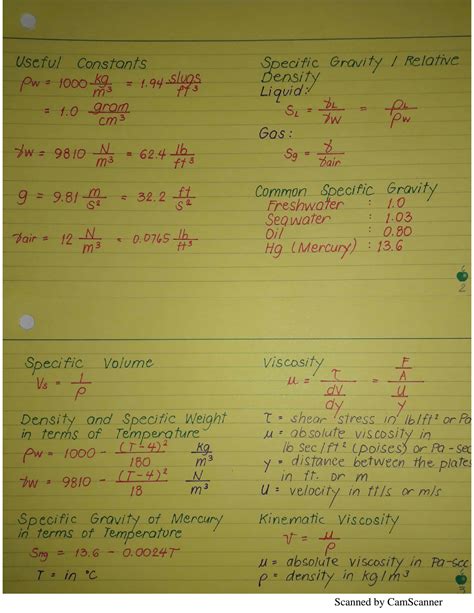 Useful Constants
ρw = 1000 kg/m³ = 1.94 slugs/ft³
= 1.0 gram/cm³
γw = 9810 N/m³ = 62.4 lb/ft³
g = 9.81 m/s² = 32.2 ft/s²
γair = 12 N/m³ = 0.0765 lb/ft³
Specific Gravity / Relative
Density
Liquid:
SL = γL/γw = ρL/ρw
Gas:
Sg = γ/γair
Common Specific Gravity
Freshwater : 1.0
Seawater : 1.03
Oil : 0.80
Hg (Mercury) : 13.6
2
Specific Volume
Vs = 1/ρ
Density and Specific Weight
in terms of Temperature
ρw = 1000 - (T-4)²/180 kg/m³
γw = 9810 - (T-4)²/18 N/m³
Specific Gravity of Mercury
in terms of Temperature
SHg = 13.6 - 0.0024T
T = in °C
Viscosity
μ = τ/(dV/dy) = (F/A)/(U/y)
τ = shear stress in lb/ft² or Pa
μ = absolute viscosity in
lb sec/ft² (poises) or Pa-sec
y = distance between the plates
in ft. or m
U = velocity in ft/s or m/s
Kinematic Viscosity
ν = μ/ρ
μ = absolute viscosity in Pa-sec
ρ = density in kg/m³
Scanned by CamScanner